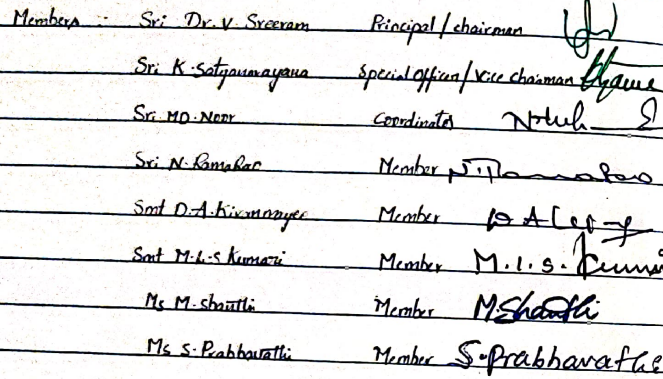 Members :- Sri Dr. V. Sreeram Principal / chairman
Sri K. Satyanarayana Special Officer / Vice chairman
Sri MD. Noor Coordinator
Sri N. Ramarao Member N. Ramarao
Smt D.A. Kiranmayee Member
Smt M.L.S Kumari Member M.L.S. Kumari
Ms M. Shanthi Member M. Shanthi
Ms S. Prabhavathi Member S. Prabhavathi